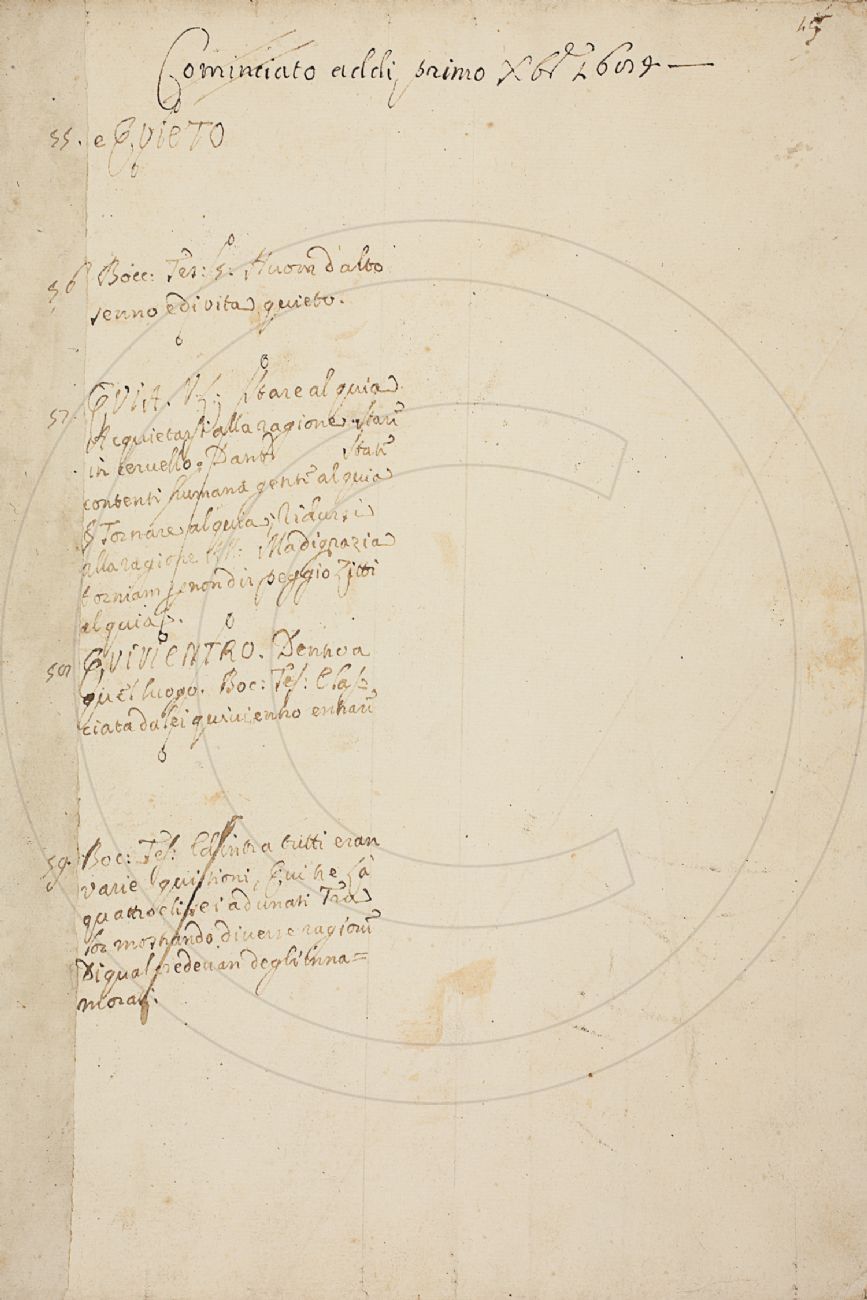 45
Cominciato addi primo Xbre 1609
55. e QVIETO
56 Bocc: Tes: 5. Huom d'alto
senno e di vita quieto.
57. QVIA. V. Stare al quia
Acquietarsi alla ragione, stare
in cervello. Dante State
contenti humana gente al quia
Tornare al quia, Ridursi
alla ragione Ma di grazia
torniam se non di peggio Zitti
al quia.
58 QVIVIENTRO. Dentro a
quel luogo. Boc: Tes: E las-
ciata da lei quivi entro entrare
59. Boc: Tes: Ed intra tutti eran
varie quistioni, Qui tre la
quattro e li sei adunati Tra
lor mostrando diverse ragioni
Di qual credevan degli inna=
morati.